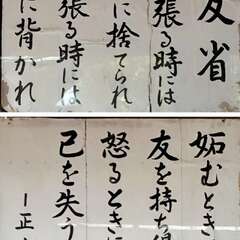 反省
張る時には
に捨てられ
張る時には
に背かれ
妬むとき
友を持ち得
怒るときに
己を失う
ー正